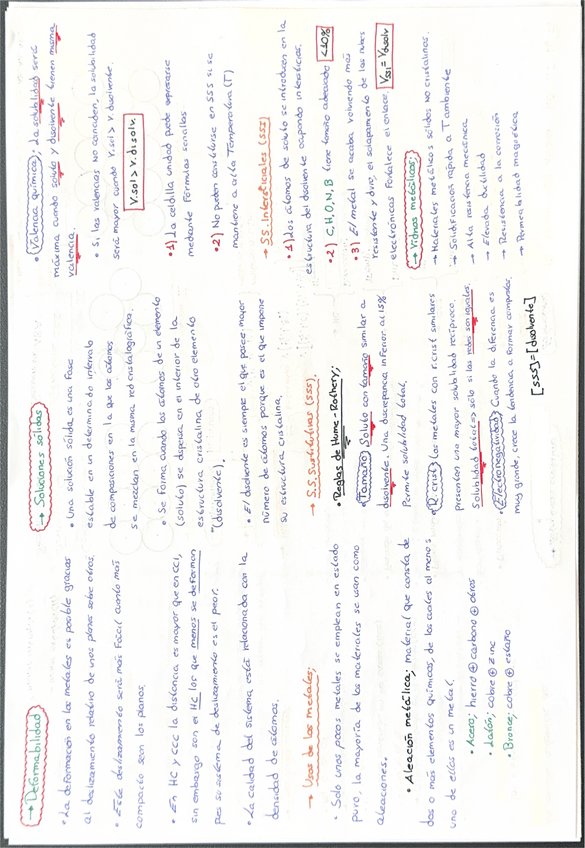 → Deformabilidad
• La deformación en los metales es posible gracias
al deslizamiento relativo de unos planos sobre otros.
• Este deslizamiento será más fácil cuanto más
compacto sean los planos.
• En HC y CCC la distancia es mayor que en CCI,
sin embargo son el HC los que menos se deforman
pues su sistema de deslizamiento es el peor.
• La calidad del sistema está relacionada con la
densidad de átomos.
→ Usos de los metales;
• Solo unos pocos metales se emplean en estado
puro, la mayoría de los materiales se usan como
aleaciones.
• Aleación metálica; material que consta de
dos o más elementos químicos, de los cuales al menos
uno de ellos es un metal.
• Acero; hierro ⊕ carbono ⊕ otros
• Latón; cobre ⊕ zinc
• Bronce; cobre ⊕ estaño
→ Soluciones sólidas
• Una solución sólida es una fase
estable en un determinado intervalo
de composiciones en la que los átomos
se mezclan en la misma red cristalográfica.
• Se forma cuando los átomos de un elemento
(soluto) se dispersa en el interior de la
estructura cristalina de otro elemento
(disolvente).
• El disolvente es siempre el que posee mayor
número de átomos porque es el que impone
su estructura cristalina.
→ S.S. Sustitutivas (SSS).
• Reglas de Hume-Rothery;
• Tamaño; Soluto con tamaño similar a
disolvente. Una discrepancia inferior al 15%
Permite solubilidad total.
• R. crist; los metales con r. crist similares
presentan una mayor solubilidad recíproca.
Solubilidad total ⇒ sólo si las redes son iguales.
• Electronegatividad; Cuando la diferencia es
muy grande, crece la tendencia a formar compuestos.
[SSS]=[disolvente]
• Valencia química; La solubilidad será
máxima cuando soluto y disolvente tienen misma
valencia.
• Si, las valencias no coinciden, la solubilidad
será mayor cuando V.sol > V.disolvente.
V.sol > V.disolv.
•1) La celdilla unidad puede expresarse
mediante fórmulas sencillas
•2) No pueden constituirse en SSS si se
mantiene a alta Temperatura (T)
→ SS. Intersticiales (SSI)
•1) Los átomos de soluto se introducen en la
estructura del disolvente ocupando intersticios.
•2) C, H, O, N, B tiene tamaño adecuado <10%
•3) El metal se acaba volviendo más
resistente y duro, el solapamiento de las nubes
electrónicas fortalece el enlace. Vssi = Vdisolv
→ Vidrios metálicos;
→ Materiales metálicos sólidos no cristalinos.
→ Solidificación rápida a T ambiente
→ Alta resistencia mecánica
→ Elevada ductilidad
→ Resistencia a la corrosión
→ Permeabilidad magnética